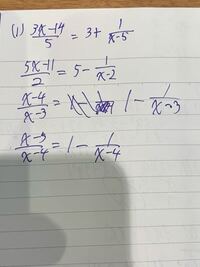 (1) (3x-14)/5 = 3 + 1/(x-5)
(5x-11)/2 = 5 - 1/(x-2)
(x-4)/(x-3) = 1 - 1/(x-3)
(x-5)/(x-4) = 1 - 1/(x-4)